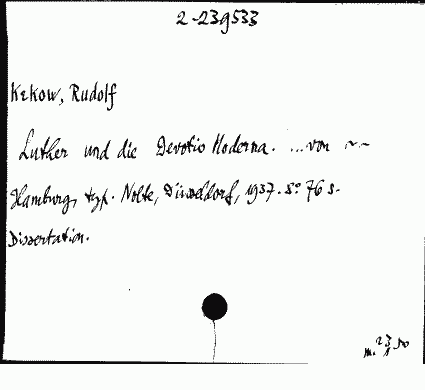 2-239533
Kekow, Rudolf
Luther und die Devotio Moderna. ... von ~~
Hamburg, typ. Nolte, Düsseldorf, 1937. 8º 76 s.
Dissertation.